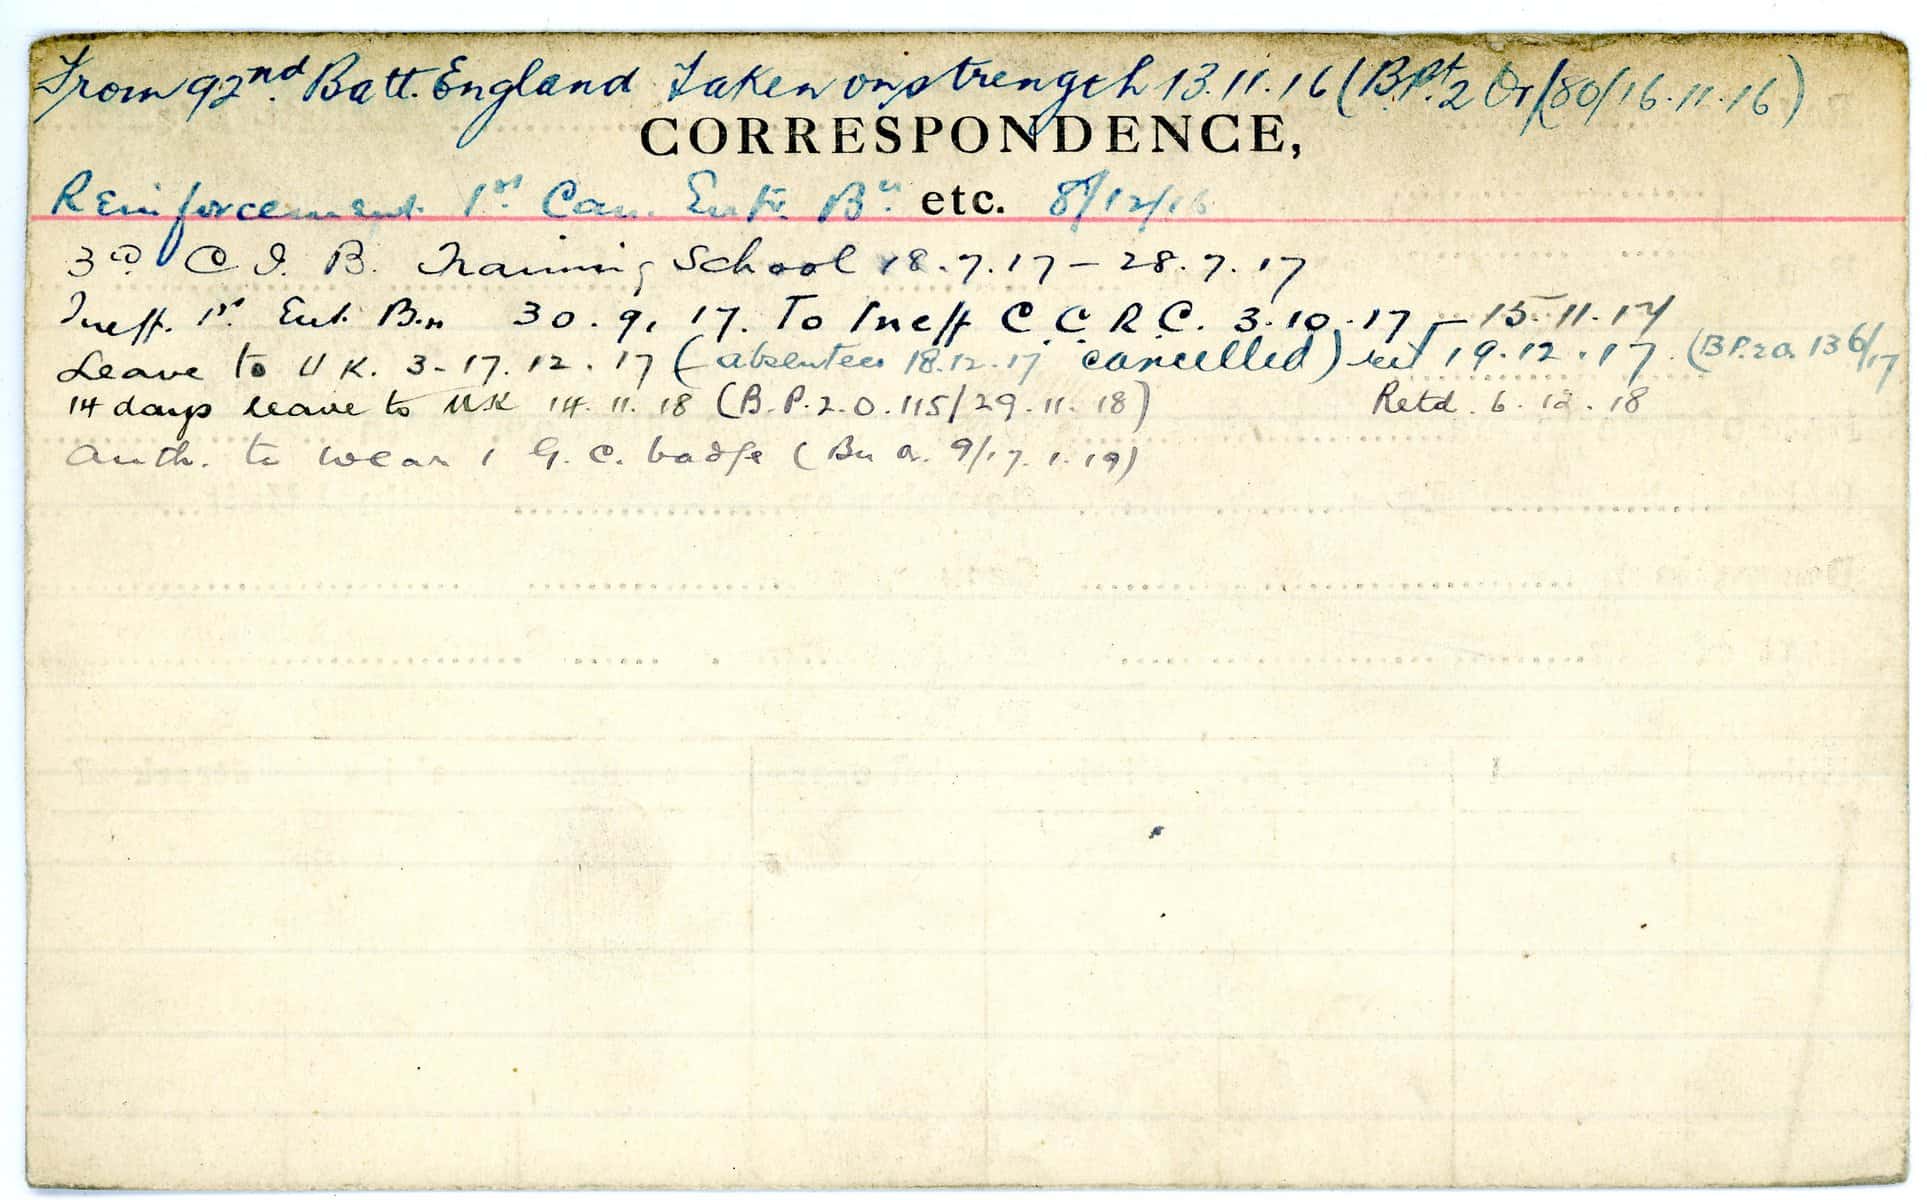 From 92nd Batt. England Taken on strength 13.11.16 (B.Pt.2 Or/80/16.11.16)
CORRESPONDENCE,
Reinforcement 1st Can. Entr. Bn etc. 8/12/16
3rd C I. B. Training School 18.7.17 – 28.7.17
Ineff. 1st Ent. Bn 30.9.17. To Ineff C.C.R.C. 3.10.17 – 15.11.17
Leave to UK. 3-17.12.17 (absentee 18.12.17 cancelled) ret 19.12.17. (B.P.2.O. 136/17
14 days leave to UK 14.11.18 (B.P.2.O.115/29.11.18) Retd. 6.12.18
Auth. to wear 1 G.C. badge (Bn O. 9/17.1.19)